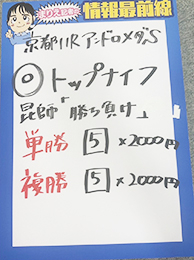 とりえ記者の
情報最前線
京都11RアンドロメダS
◎トップナイフ
昆師「勝ち負け」
単勝 5 ×2000円
複勝 5 ×2000円